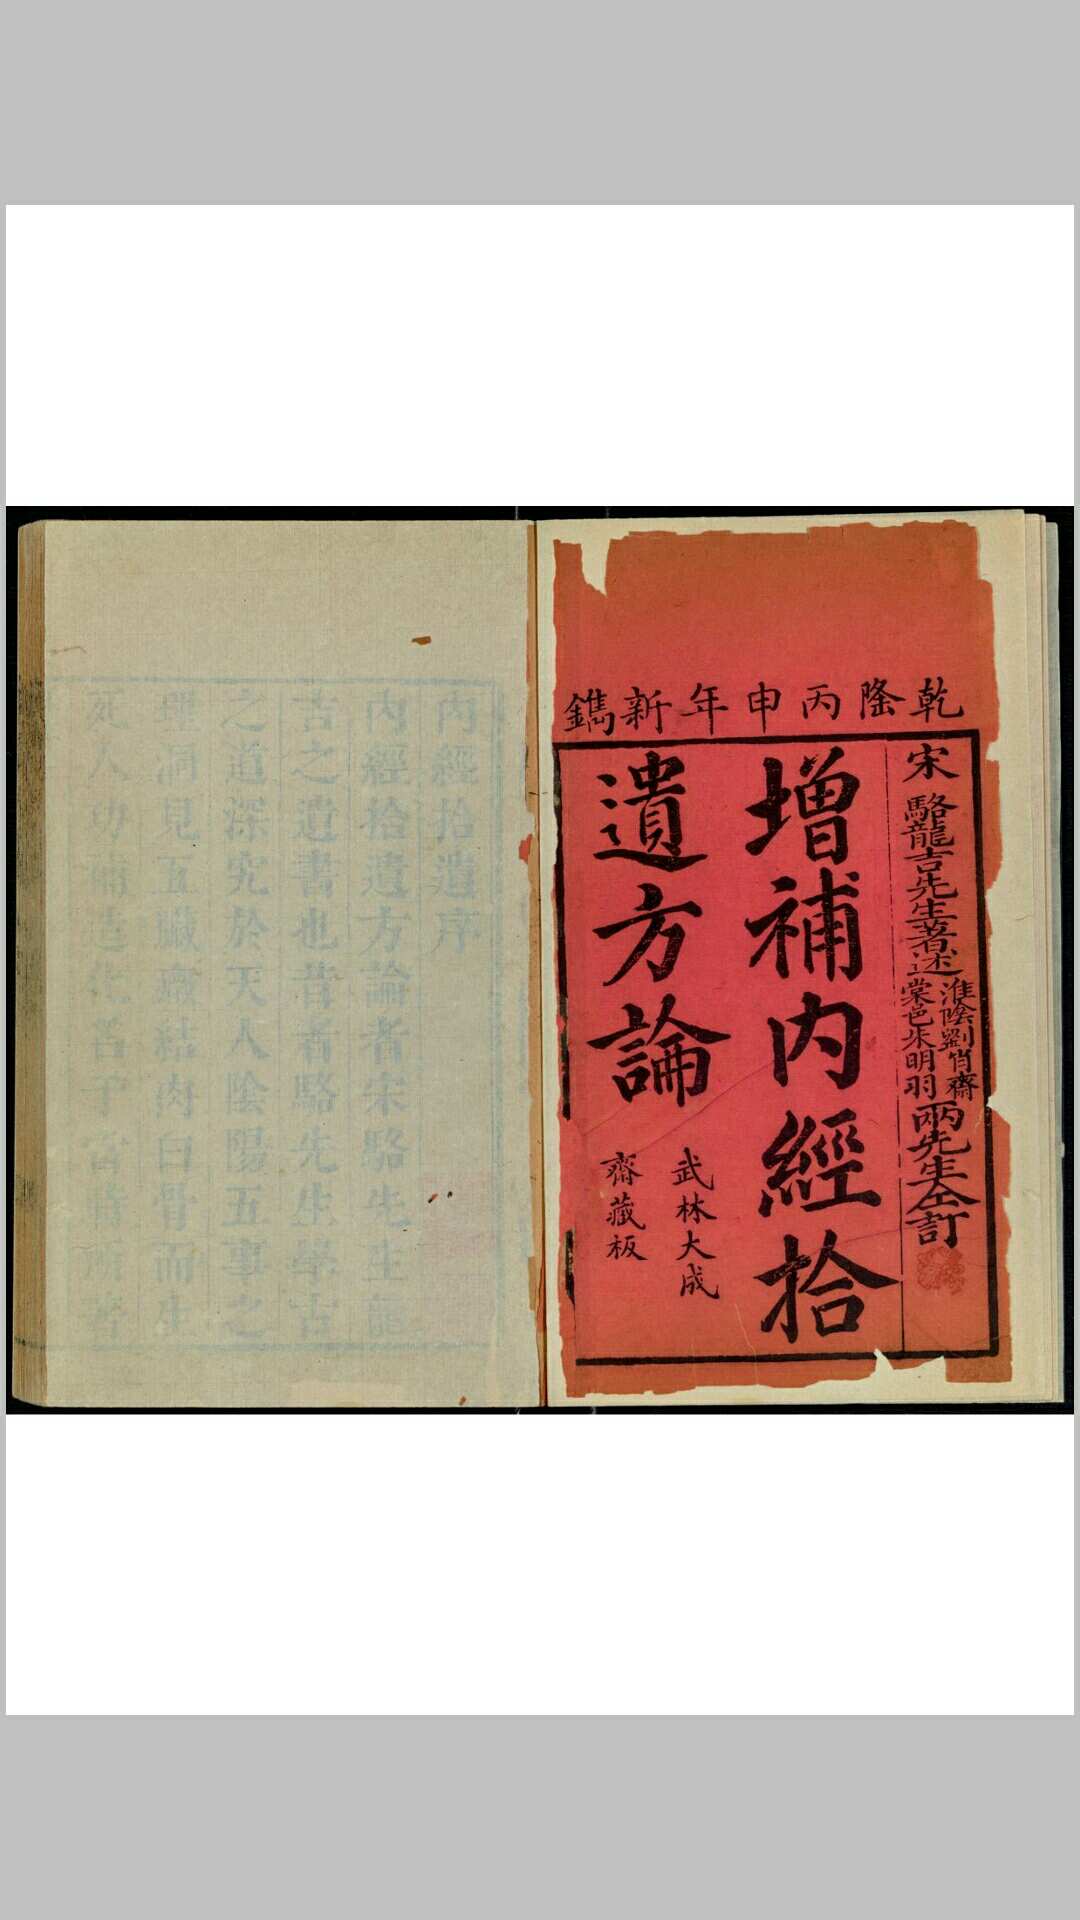 乾隆丙申年新鐫
宋 駱龍吉先生著述 淮陰劉肖齋 棠邑朱明羽 兩先生仝訂
增補內經拾
遺方論
武林大成
齋藏板
內經拾遺序
內經拾遺方論者宋駱先生龍
吉之遺書也昔者駱先生學古
之道深究於天人陰陽五事之
理洞見五臟癥結肉白骨而生
死人功